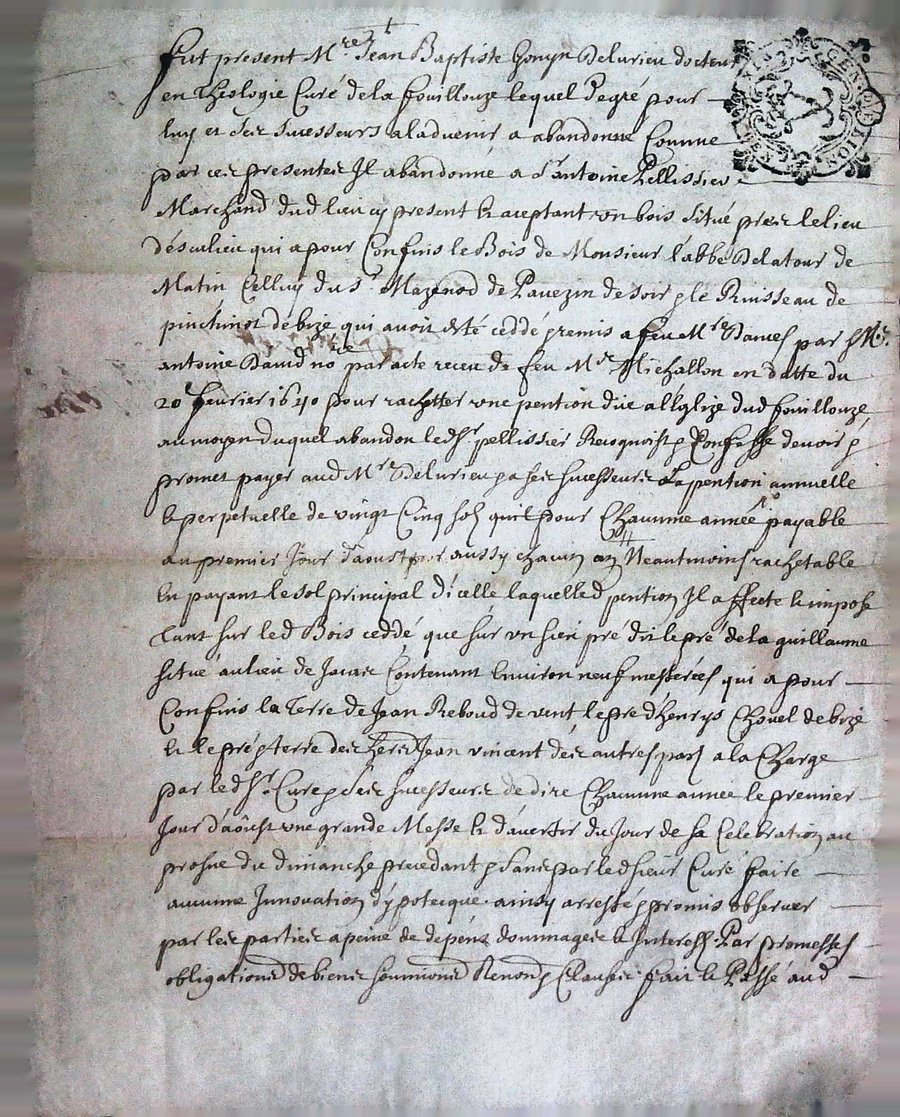 Fut present Mre Jean Baptiste Gonyn Delurieu docteur
en Theologie Curé de la fouillouze lequel degré pour
luy et ses sucesseurs a ladvenir a abandonne Comme
par ces presentes Il abandonne a Sr antoine Pellissier
Marchand dud lieu cy present & aceptant un bois situé pres le lieu
qui a pour Confins le Bois de Monsieur l'abbé Delatour de
Matin Celluy du Sr Mazenod de Pavezin de soir & le Ruisseau de
de bize qui avoit esté ceddé & remis a feu Mre par Mre
antoine David nore par acte receu de feu Me Michallon en datte du
20 fevrier 1640 pour rachetter une pention düe a l'Eglize dud fouillouze
au moyen duquel abandon led Sr pellissier Recognoist & Confesse devoir &
promet payer aud Mre Delurieu & a ses sucesseurs La pention annuelle
& perpetuelle de vingt Cinq sols pour Chacune année payable
au premier Jour d'aoust aussy chacun an Neantmoins rachetable
En payant le sol principal d'icelle laquelle d pention Il affecte & impose
Tant sur led Bois ceddé que sur un sien pré dit le pré de la guillaume
situé au lieu de Contenant Environ neuf mestérées qui a pour
Confins la Terre de Jean Reboud de vent le pre d'henrys Chovel de bize
& le pré & terre des Jean vincent des autres parts a la Charge
par led Sr Curé & ses sucesseurs de dire Chacune année le premier
Jour d'aoust une grande Messe & d'avertir du Jour de sa Celebration au
prosne du dimanche precedant & sans par led sieur Curé faire
aucune Innovation d'ypotecque ainsy arresté & promis observer
par les parties a peine de depens dommages & Interests Par promesses
obligations de biens soumions Renons & Clauses fait & Passé aud
GEN DE LION